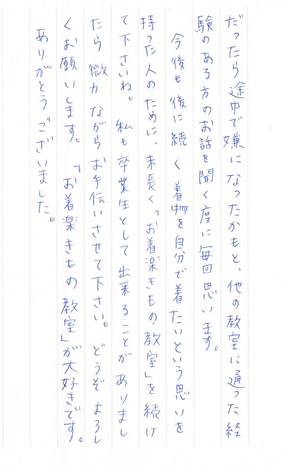 だったら途中で嫌になったかもと、他の教室に通った経
験のある方のお話を聞く度に毎回思います。
今後も後に続く着物を自分で着たいという思いを
持った人のために、末長く「お着楽きもの教室」を続け
て下さいね。私も卒業生として出来ることがありまし
たら微力ながらお手伝いさせて下さい。どうぞよろし
くお願いします。「お着楽きもの教室」が大好きです。
ありがとうございました。